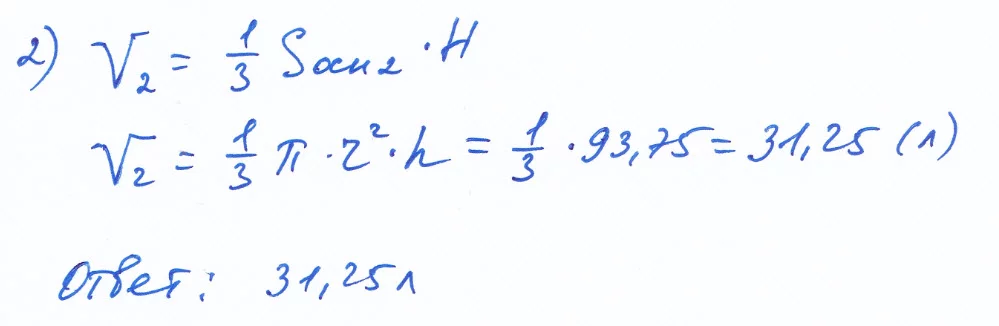 2) V₂ = 1/3 Sосн 2 · H
V₂ = 1/3 π · r² · h = 1/3 · 93,75 = 31,25 (л)
Ответ: 31,25 л